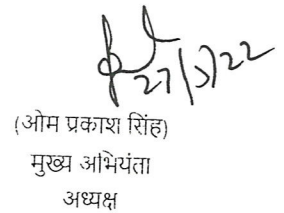 27/5/22
(ओम प्रकाश सिंह)
मुख्य अभियंता
अध्यक्ष